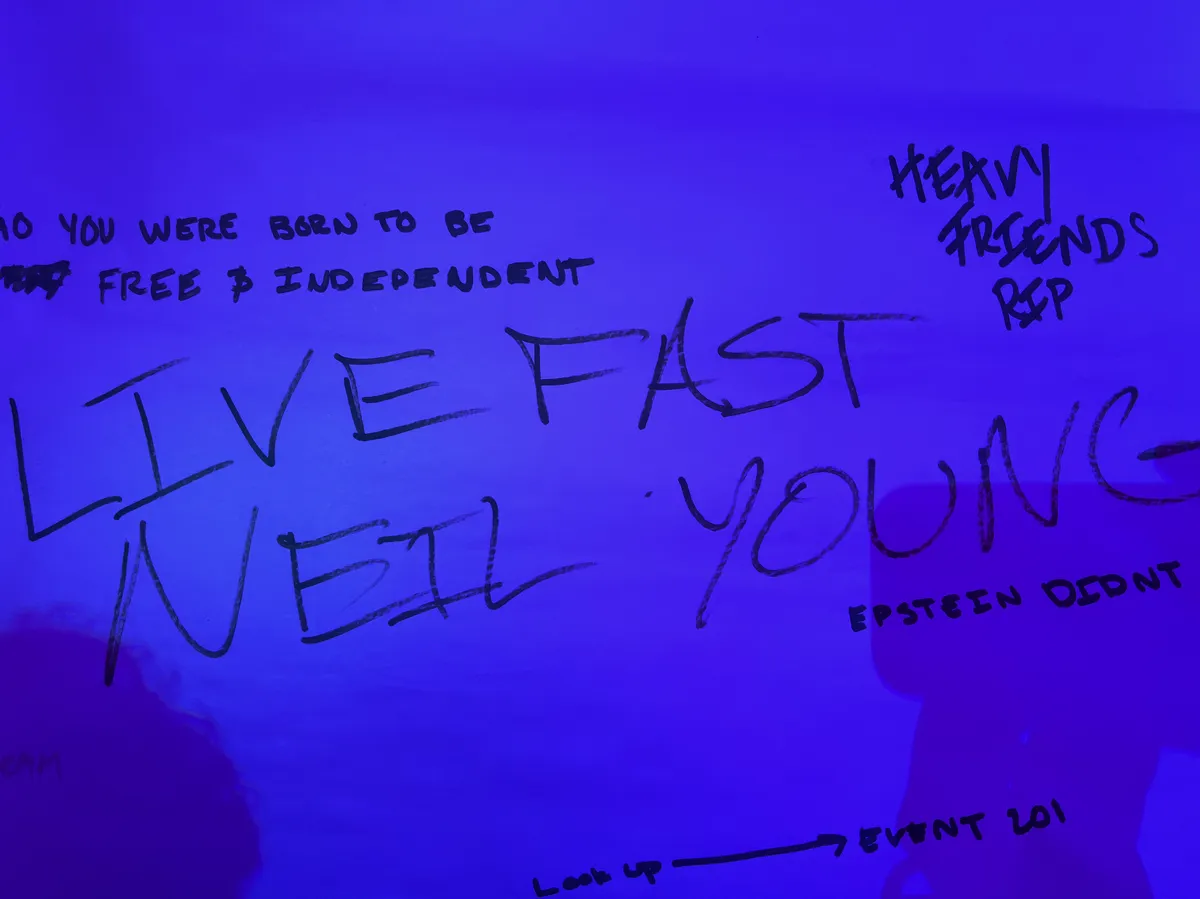 YOU WERE BORN TO BE
FREE & INDEPENDENT
HEAVY
FRIENDS
RIP
LIVE FAST
NEIL YOUNG
EPSTEIN DIDNT
Look up → EVENT 201